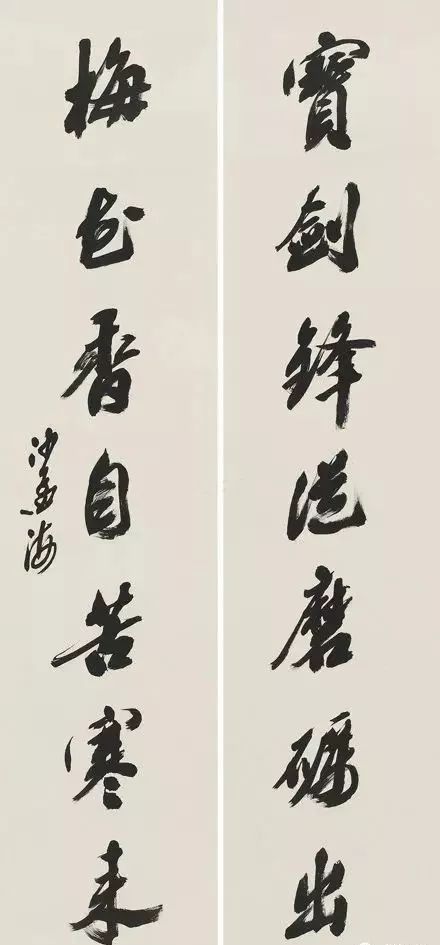 寶劍鋒從磨礪出
梅花香自苦寒来
沙孟海